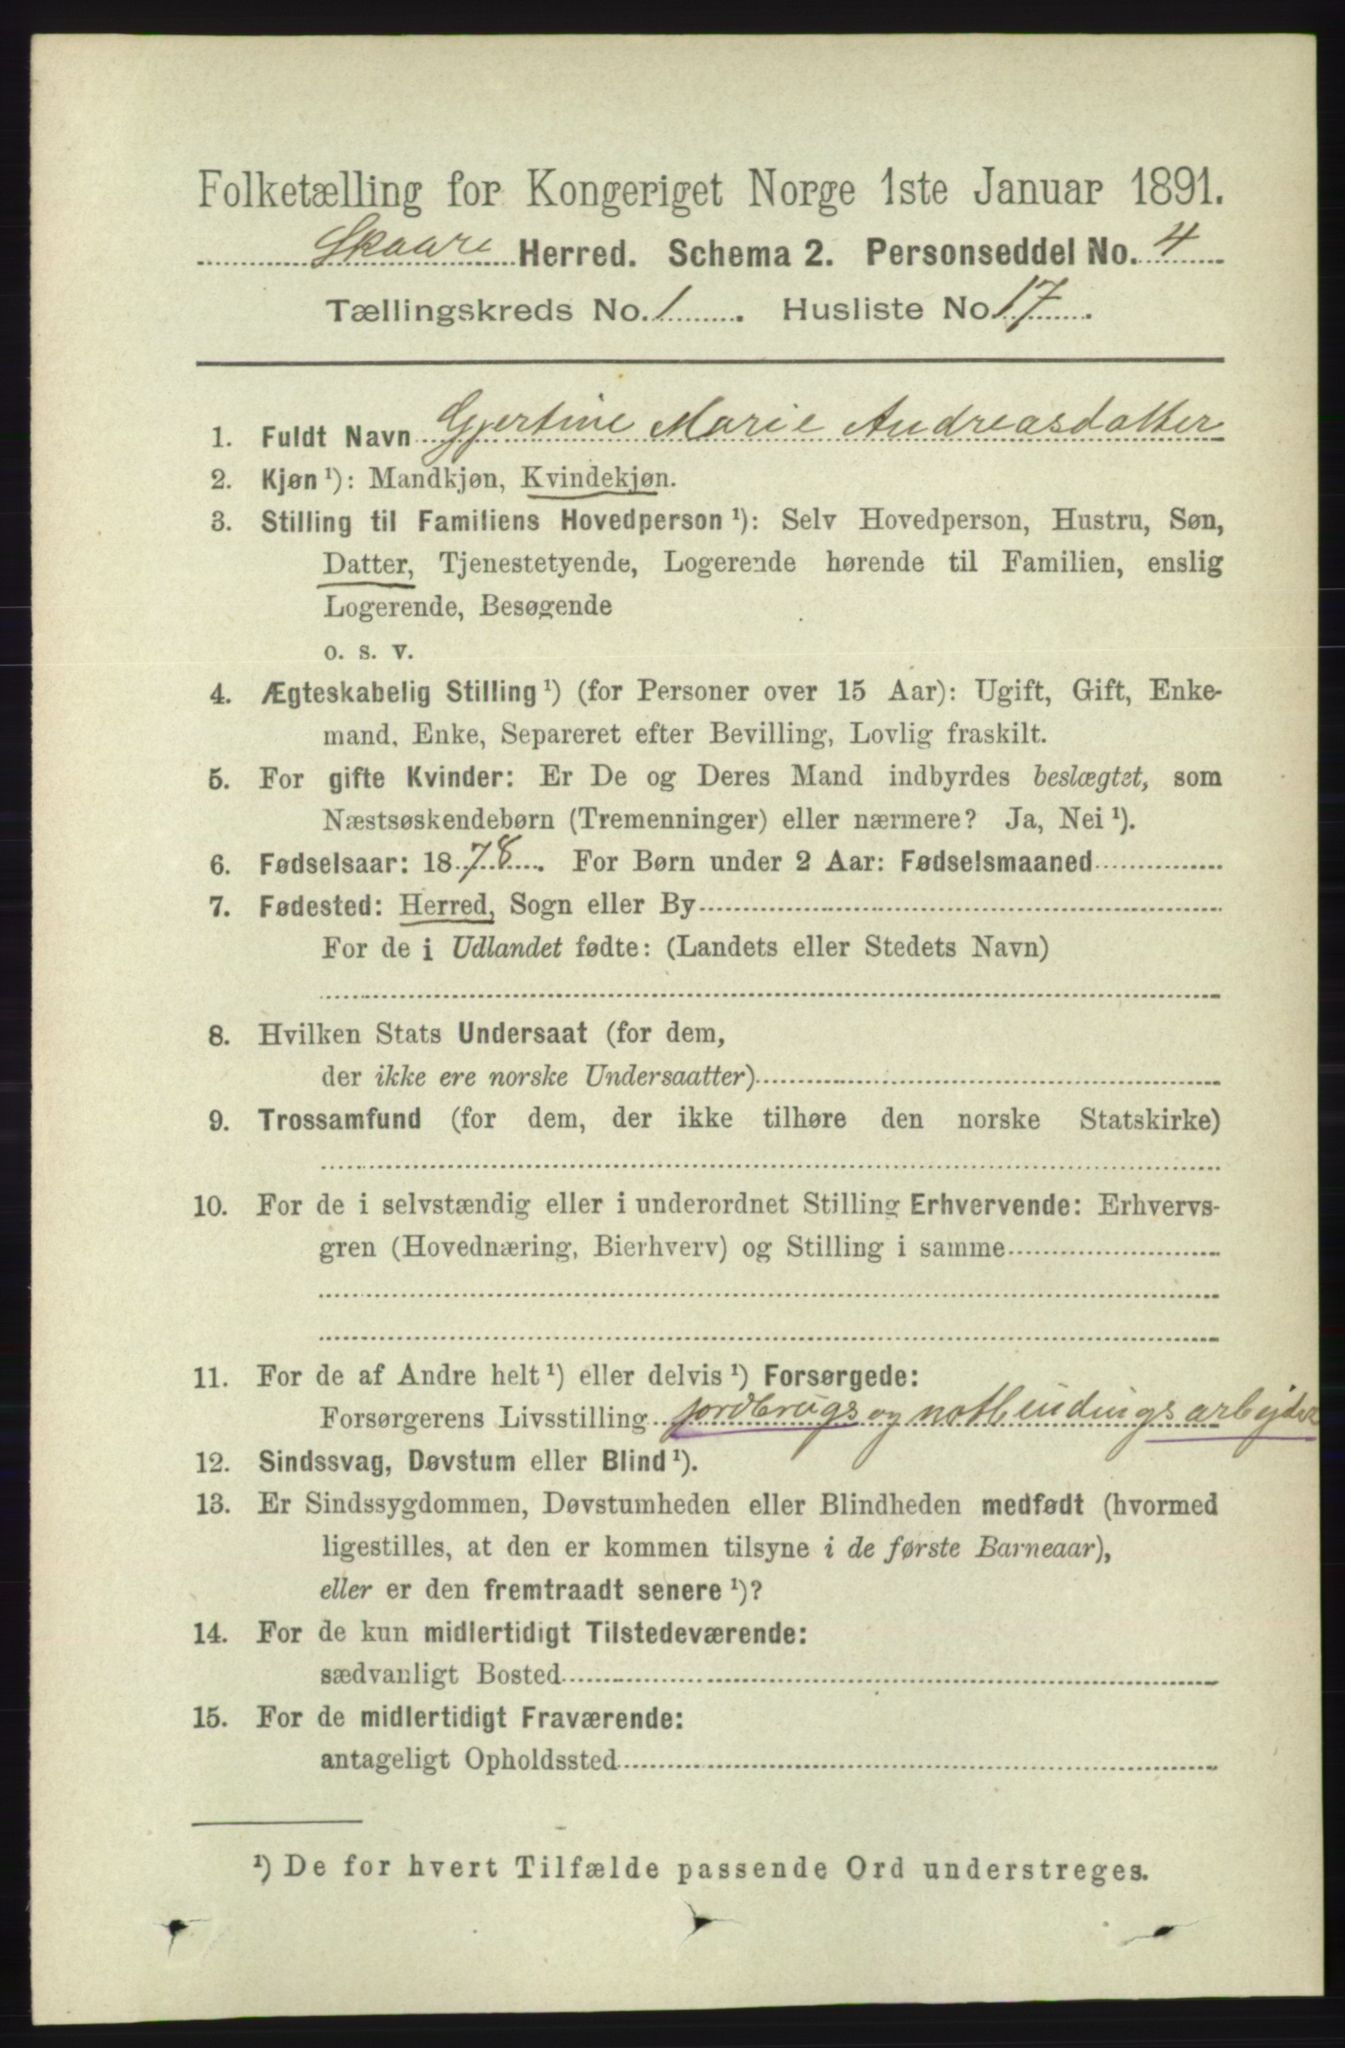 Folketælling for Kongeriget Norge 1ste Januar 1891.
Skaare Herred. Schema 2. Personseddel No. 4
Tællingskreds No. 1. Husliste No 17.
1. Fuldt Navn Gjertine Marie Andreasdatter
2. Kjøn ¹): Mandkjøn, Kvindekjøn.
3. Stilling til Familiens Hovedperson ¹): Selv Hovedperson, Hustru, Søn,
Datter, Tjenestetyende, Logerende hørende til Familien, enslig
Logerende, Besøgende
o. s. v.
4. Ægteskabelig Stilling ¹) (for Personer over 15 Aar): Ugift, Gift, Enke-
mand, Enke, Separeret efter Bevilling, Lovlig fraskilt.
5. For gifte Kvinder: Er De og Deres Mand indbyrdes beslægtet, som
Næstsøskendebørn (Tremenninger) eller nærmere? Ja, Nei ¹).
6. Fødselsaar: 1878. For Børn under 2 Aar: Fødselsmaaned
7. Fødested: Herred, Sogn eller By
For de i Udlandet fødte: (Landets eller Stedets Navn)
8. Hvilken Stats Undersaat (for dem,
der ikke ere norske Undersaatter)
9. Trossamfund (for dem, der ikke tilhøre den norske Statskirke)
10. For de i selvstændig eller i underordnet Stilling Erhvervende: Erhvervs-
gren (Hovednæring, Bierhverv) og Stilling i samme
11. For de af Andre helt ¹) eller delvis ¹) Forsørgede:
Forsørgerens Livsstilling jordbrugs og notbindings arbejder
12. Sindssvag, Døvstum eller Blind ¹).
13. Er Sindssygdommen, Døvstumheden eller Blindheden medfødt (hvormed
ligestilles, at den er kommen tilsyne i de første Barneaar),
eller er den fremtraadt senere ¹)?
14. For de kun midlertidigt Tilstedeværende:
sædvanligt Bosted
15. For de midlertidigt Fraværende:
antageligt Opholdssted
¹) De for hvert Tilfælde passende Ord understreges.